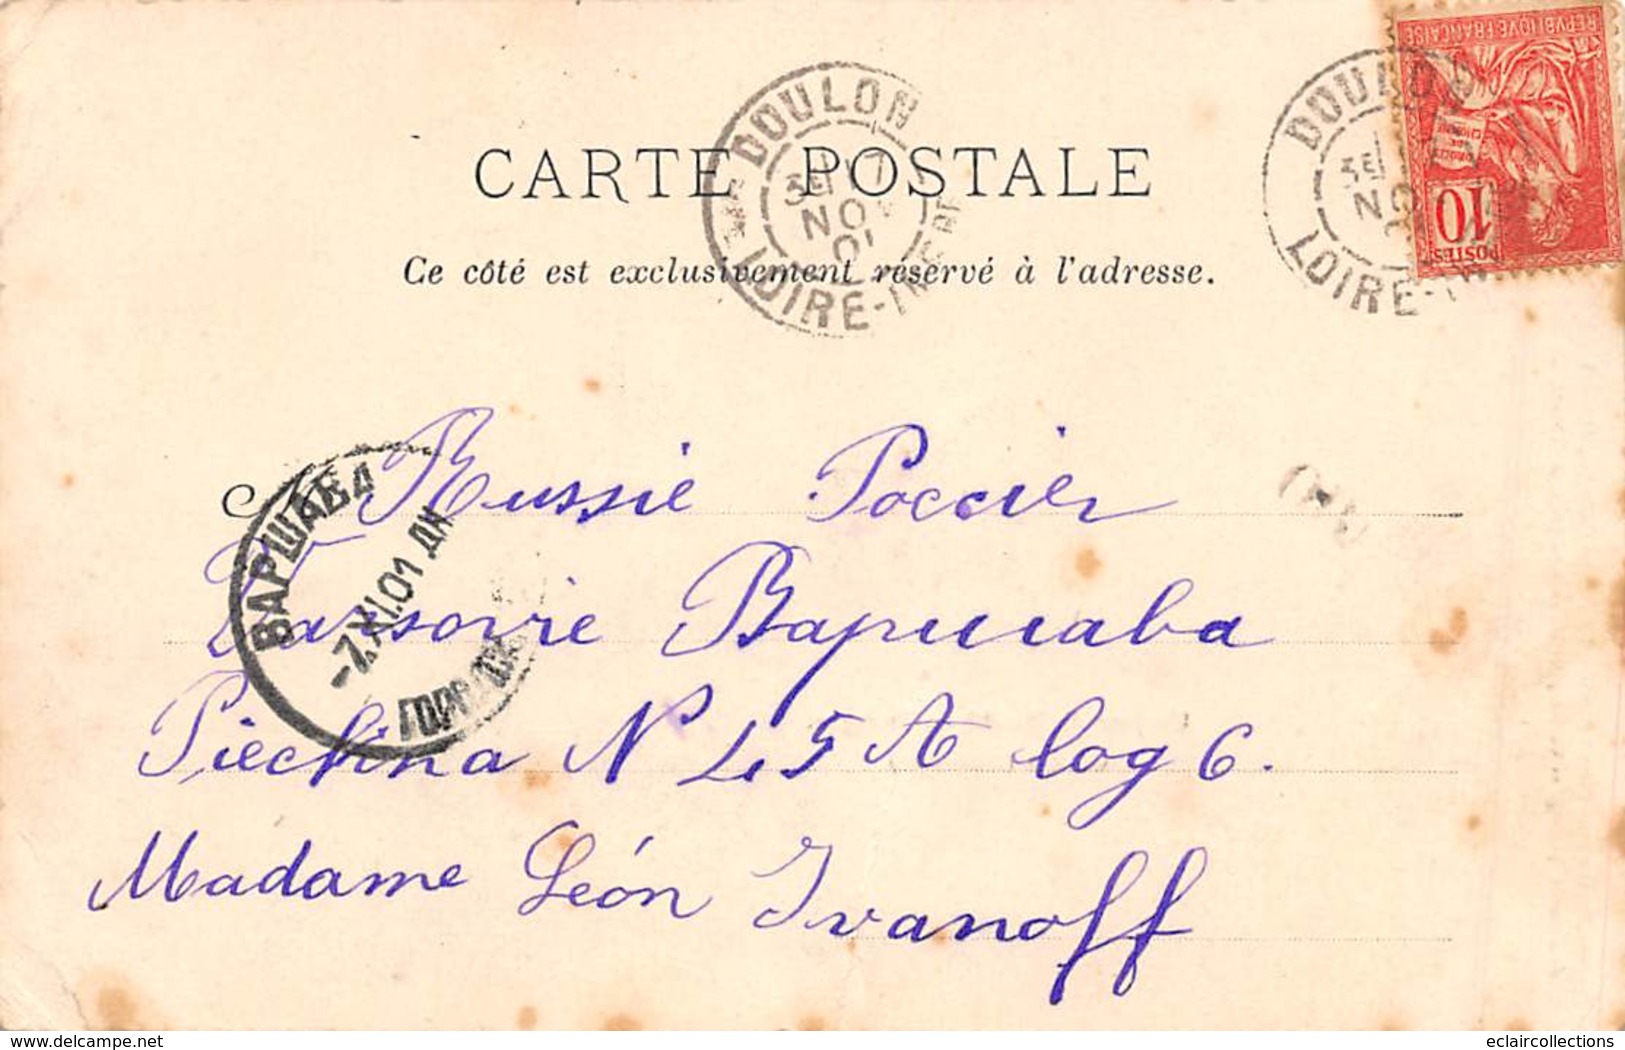 RÉPUBLIQUE FRANÇAISE
10
POSTES
DOULON
3E 17
NOV
01
LOIRE-INFRE
DOULON
3E
NO
LOIRE-
CARTE POSTALE
Ce côté est exclusivement réservé à l'adresse.
Russie Россия
Varsovie Варшава
Piechna N 45 A log 6.
Madame Léon Ivanoff
ВАРШАВА
-7.XI.01 ДН
www.delcampe.net
eclaircollections